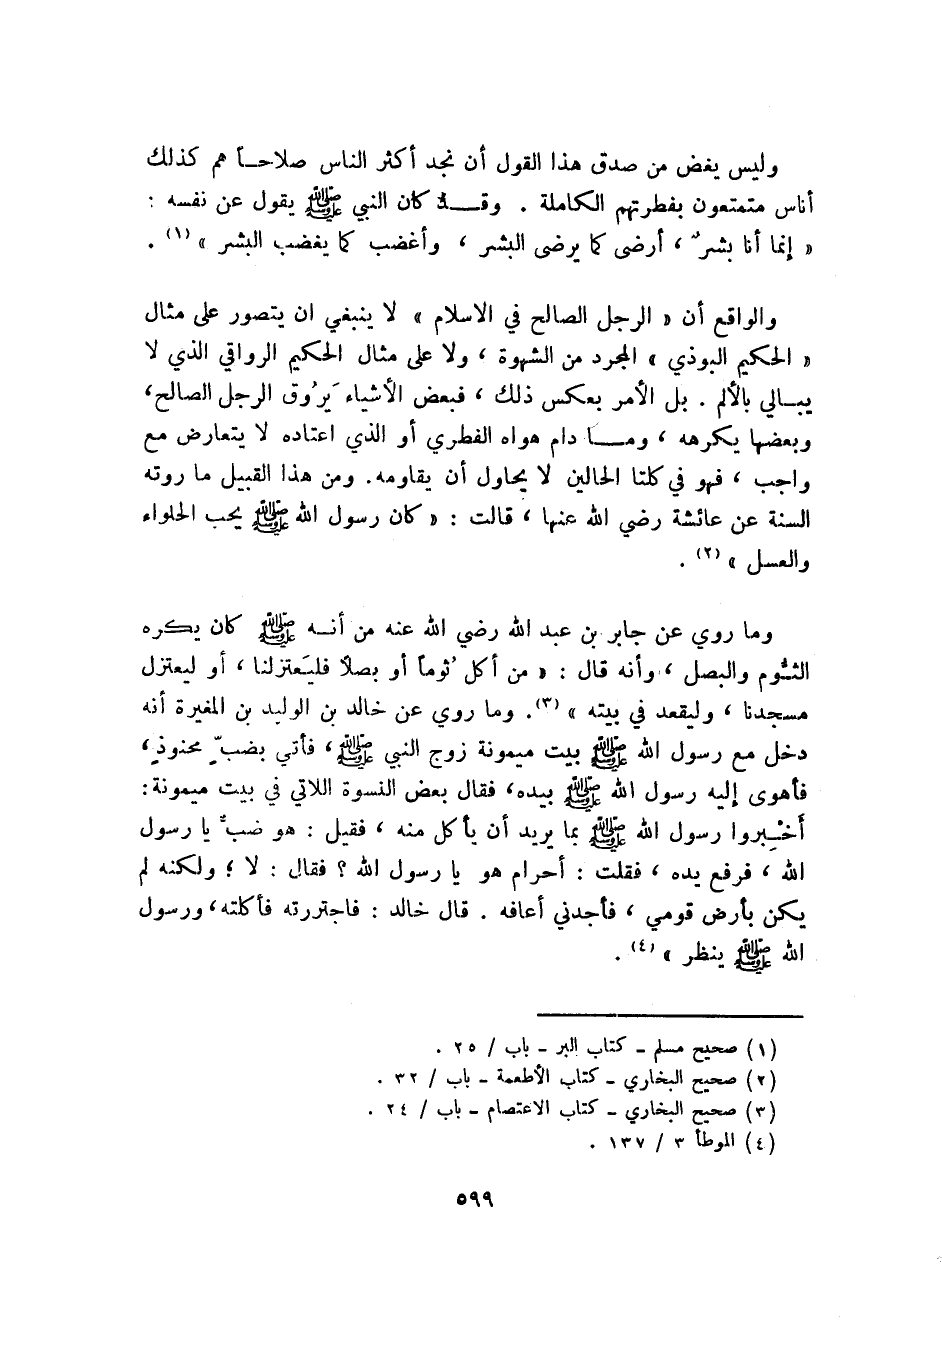 وليس يغض من صدق هذا القول أن نجد أكثر الناس صلاحـاً هم كذلك
أناس متمتعون بفطرتهم الكاملة . وقـــد كان النبي ﷺ يقول عن نفسه :
« إنما أنا بشرٌ ، أرضى كما يرضى البشر ، وأغضب كما يغضب البشر » (١) .
والواقع أن « الرجل الصالح في الاسلام » لا ينبغي ان يتصور على مثال
« الحكيم البوذي » المجرد من الشهوة ، ولا على مثال الحكيم الرواقي الذي لا
يبـــالي بالألم . بل الأمر بعكس ذلك ، فبعض الأشياء يَرُوق الرجل الصالح ،
وبعضها يكرهه ، ومـــا دام هواه الفطري أو الذي اعتاده لا يتعارض مع
واجب ، فهو في كلتا الحالين لا يحاول أن يقاومه. ومن هذا القبيل ما روته
السنة عن عائشة رضي الله عنها ، قالت : « كان رسول الله ﷺ يحب الحلواء
والعسل » (٢) .
وما روي عن جابر بن عبد الله رضي الله عنه من أنـــه ﷺ كان يكره
الثُّوم والبصل ، وأنه قال : « من أكل ثُوماً أو بصلاً فليَعتزلنا ، أو ليعتزل
مسجدنا ، وليقعد في بيته » (٣). وما روي عن خالد بن الوليد بن المغيرة أنه
دخل مع رسول الله ﷺ بيت ميمونة زوج النبي ﷺ ، فأتي بضبٍّ محنوذٍ ،
فأهوى إليه رسول الله ﷺ بيده، فقال بعض النسوة اللاتي في بيت ميمونة:
أَخْبِروا رسول الله ﷺ بما يريد أن يأكل منه ، فقيل : هو ضبٌّ يا رسول
الله ، فرفع يده ، فقلت : أحرام هو يا رسول الله ؟ فقال : لا ؛ ولكنه لم
يكن بأرض قومي ، فأجدني أعافه . قال خالد : فاجتررته فأكلته، ورسول
الله ﷺ ينظر » (٤) .
(١) صحيح مسلم ـ كتاب البر ـ باب / ٢٥ .
(٢) صحيح البخاري ـ كتاب الأطعمة ـ باب / ٣٢ .
(٣) صحيح البخاري ـ كتاب الاعتصام ـ باب / ٢٤ .
(٤) الموطأ ٣ / ١٣٧ .
٥٩٩